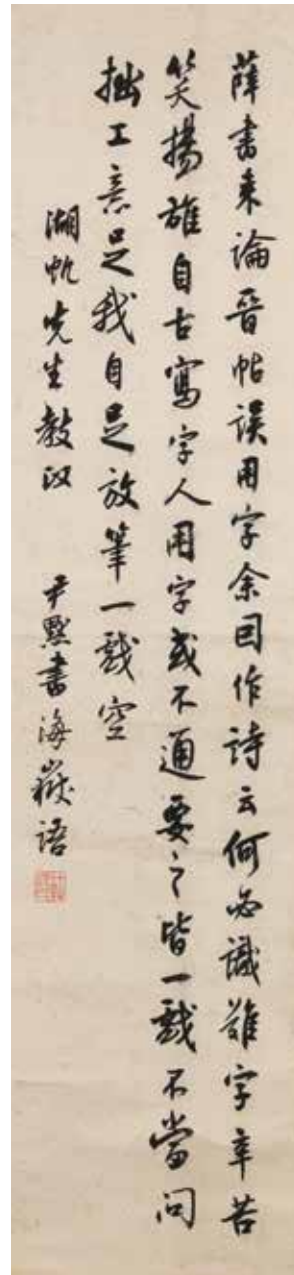 薛書來論晉帖誤用字余因作詩云何必識難字辛苦
笑揚雄自古寫字人用字或不通要之皆一戲不當問
拙工意足我自足放筆一戲空
湖帆先生教政 尹默書海嶽語